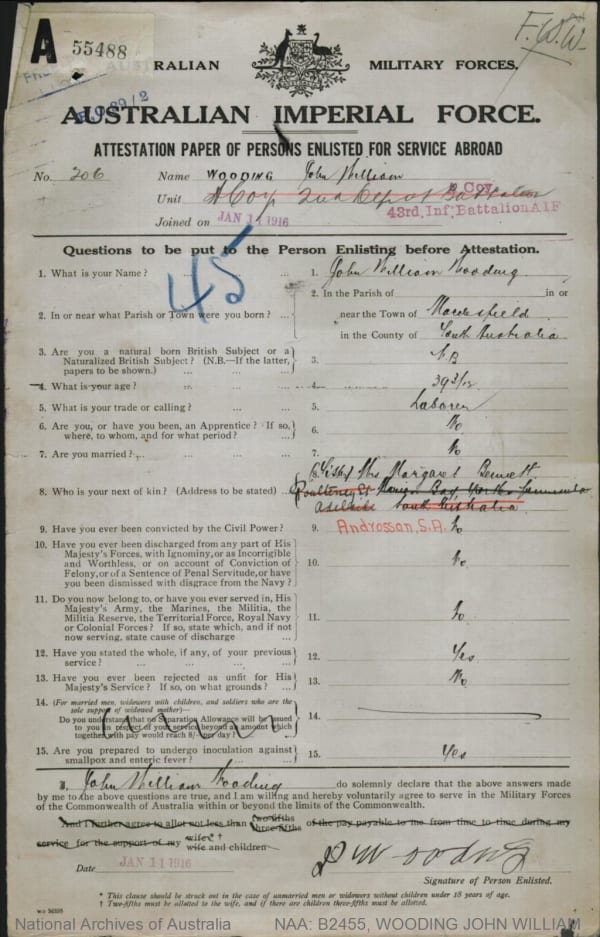 A 55488
F.W.W.
AUSTRALIAN MILITARY FORCES.
AUSTRALIAN IMPERIAL FORCE.
ATTESTATION PAPER OF PERSONS ENLISTED FOR SERVICE ABROAD
No. 206 Name WOODING John William
Unit A Coy 2nd Depot Battalion
Coy
43rd. Inf. Battalion AIF
Joined on JAN 11 1916
Questions to be put to the Person Enlisting before Attestation.
45
1. What is your Name? ... ... ... 1. John William Wooding
2. In or near what Parish or Town were you born? ... 2. In the Parish of in or
near the Town of
in the County of South Australia
3. Are you a natural born British Subject or a
Naturalized British Subject? (N.B.—If the latter,
papers to be shown.) ... ... ... 3. N.B
4. What is your age? ... ... ... 4. 39 3/12
5. What is your trade or calling? ... ... 5. Laborer
6. Are you, or have you been, an Apprentice? If so,
where, to whom, and for what period? ... 6. No
7. Are you married? ... ... ... 7. No
8. Who is your next of kin? (Address to be stated) ... 8. (Sister) Mrs Margaret Bennett
Adelaide South Australia
Ardrossan, S.A.
9. Have you ever been convicted by the Civil Power? 9. No
10. Have you ever been discharged from any part of His
Majesty's Forces, with Ignominy, or as Incorrigible
and Worthless, or on account of Conviction of
Felony, or of a Sentence of Penal Servitude, or have
you been dismissed with disgrace from the Navy? 10. No
11. Do you now belong to, or have you ever served in, His
Majesty's Army, the Marines, the Militia, the
Militia Reserve, the Territorial Force, Royal Navy
or Colonial Forces? If so, state which, and if not
now serving, state cause of discharge ... 11. No
12. Have you stated the whole, if any, of your previous
service? ... ... ... ... 12. Yes
13. Have you ever been rejected as unfit for His
Majesty's Service? If so, on what grounds? ... 13. No
14. (For married men, widowers with children, and soldiers who are the
sole support of widowed mother)—
Do you understand that no Separation Allowance will be issued
to you in respect of your service beyond an amount which
together with pay would reach 8/- per day? ... 14.
15. Are you prepared to undergo inoculation against
smallpox and enteric fever? ... ... 15. Yes
I, John William Wooding do solemnly declare that the above answers made
by me to the above questions are true, and I am willing and hereby voluntarily agree to serve in the Military Forces
of the Commonwealth of Australia within or beyond the limits of the Commonwealth.
And I further agree to allot not less than two-fifths three-fifths of the pay payable to me from time to time during my
service for the support of my wife † wife and children
Date JAN 11 1916 J W Wooding
Signature of Person Enlisted.
* This clause should be struck out in the case of unmarried men or widowers without children under 18 years of age.
† Two-fifths must be allotted to the wife, and if there are children three-fifths must be allotted.
National Archives of Australia NAA: B2455, WOODING JOHN WILLIAM